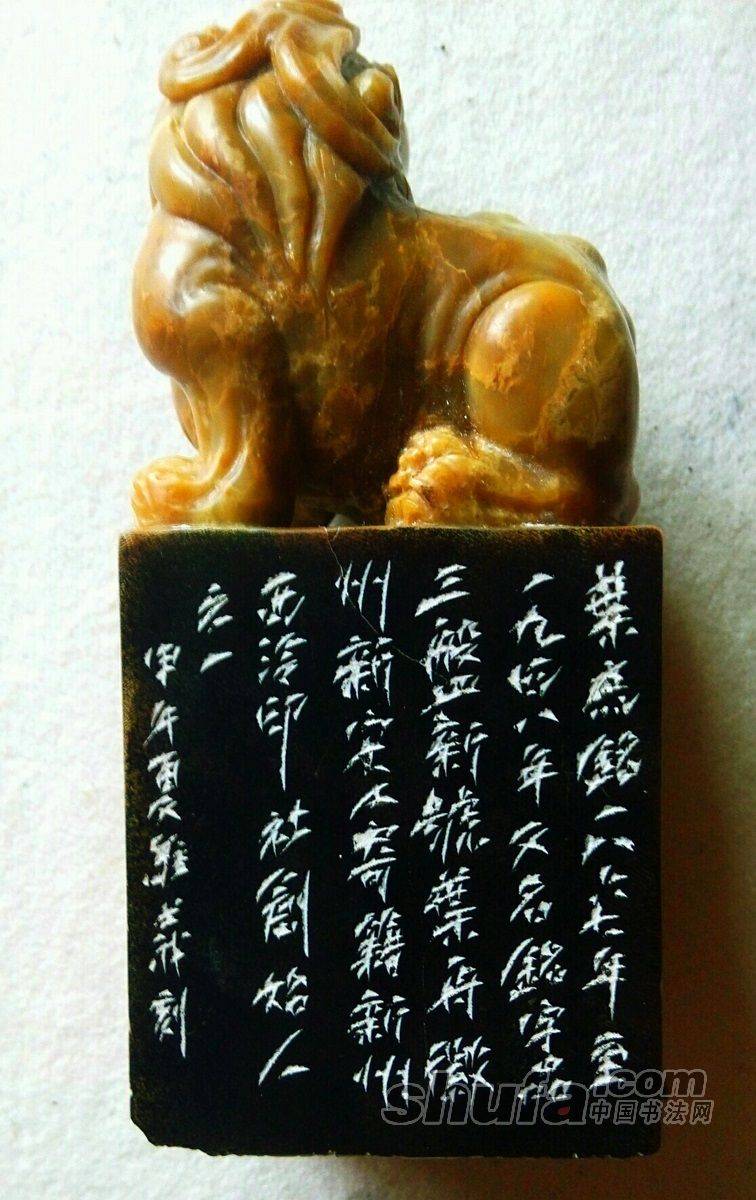 葉為銘一八六七年至
一九四八年又名銘字品
三盤新號葉舟徽
州新安人寄籍新州
西泠印社創始人
之一
甲午刻
shufa.com
中国书法网